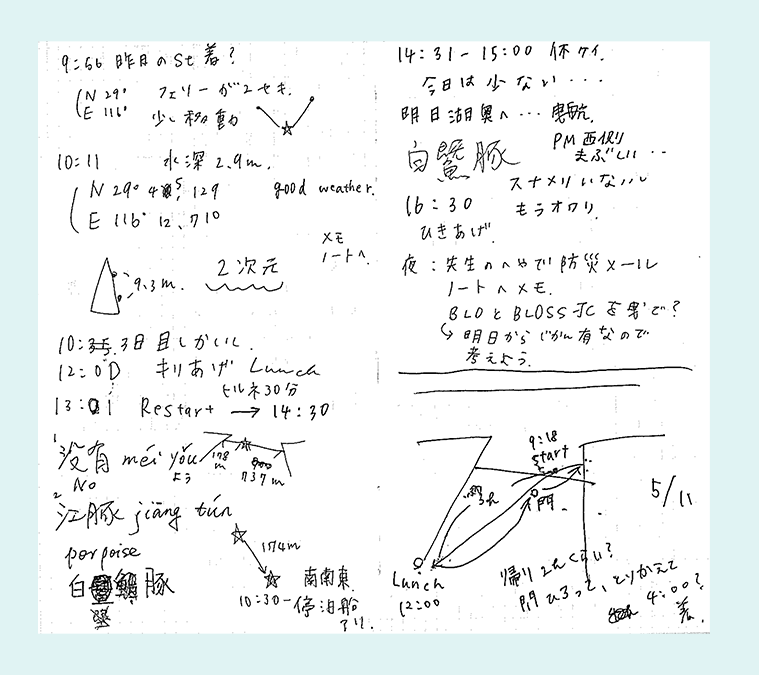 9:56 昨日のSt着?
N 29°
E 116°
フェリーが2せき.
少し移動
10:11 水深 2.9m.
N 29° 129
E 116° 12.710
good weather.
メモ
ノートへ.
9.3m.
2次元
10: 3日目しかいし.
12:00 きりあげ Lunch
ヒルネ30分
13:01 Restart → 14:30
1 没有 méi yǒu
よう
No
178m
737m
2 江豚 jiāng tún
porpoise
白 豚
174m
南南東
10:30- 停泊船
アリ.
14:31-15:00 休ケイ.
今日は少ない...
明日湖奥へ...
白鱀豚
PM西側
まぶしい..
スナメリいない
16:30 もうオワリ.
ひきあげ.
夜:先生のへやで防災メール
ノートへメモ.
BLOとBLOSS JCを
明日からじかん有なので
考えよう.
9:18
start
門.
5/11
Lunch
12:00
帰り2hくらい?
4:00?
着.